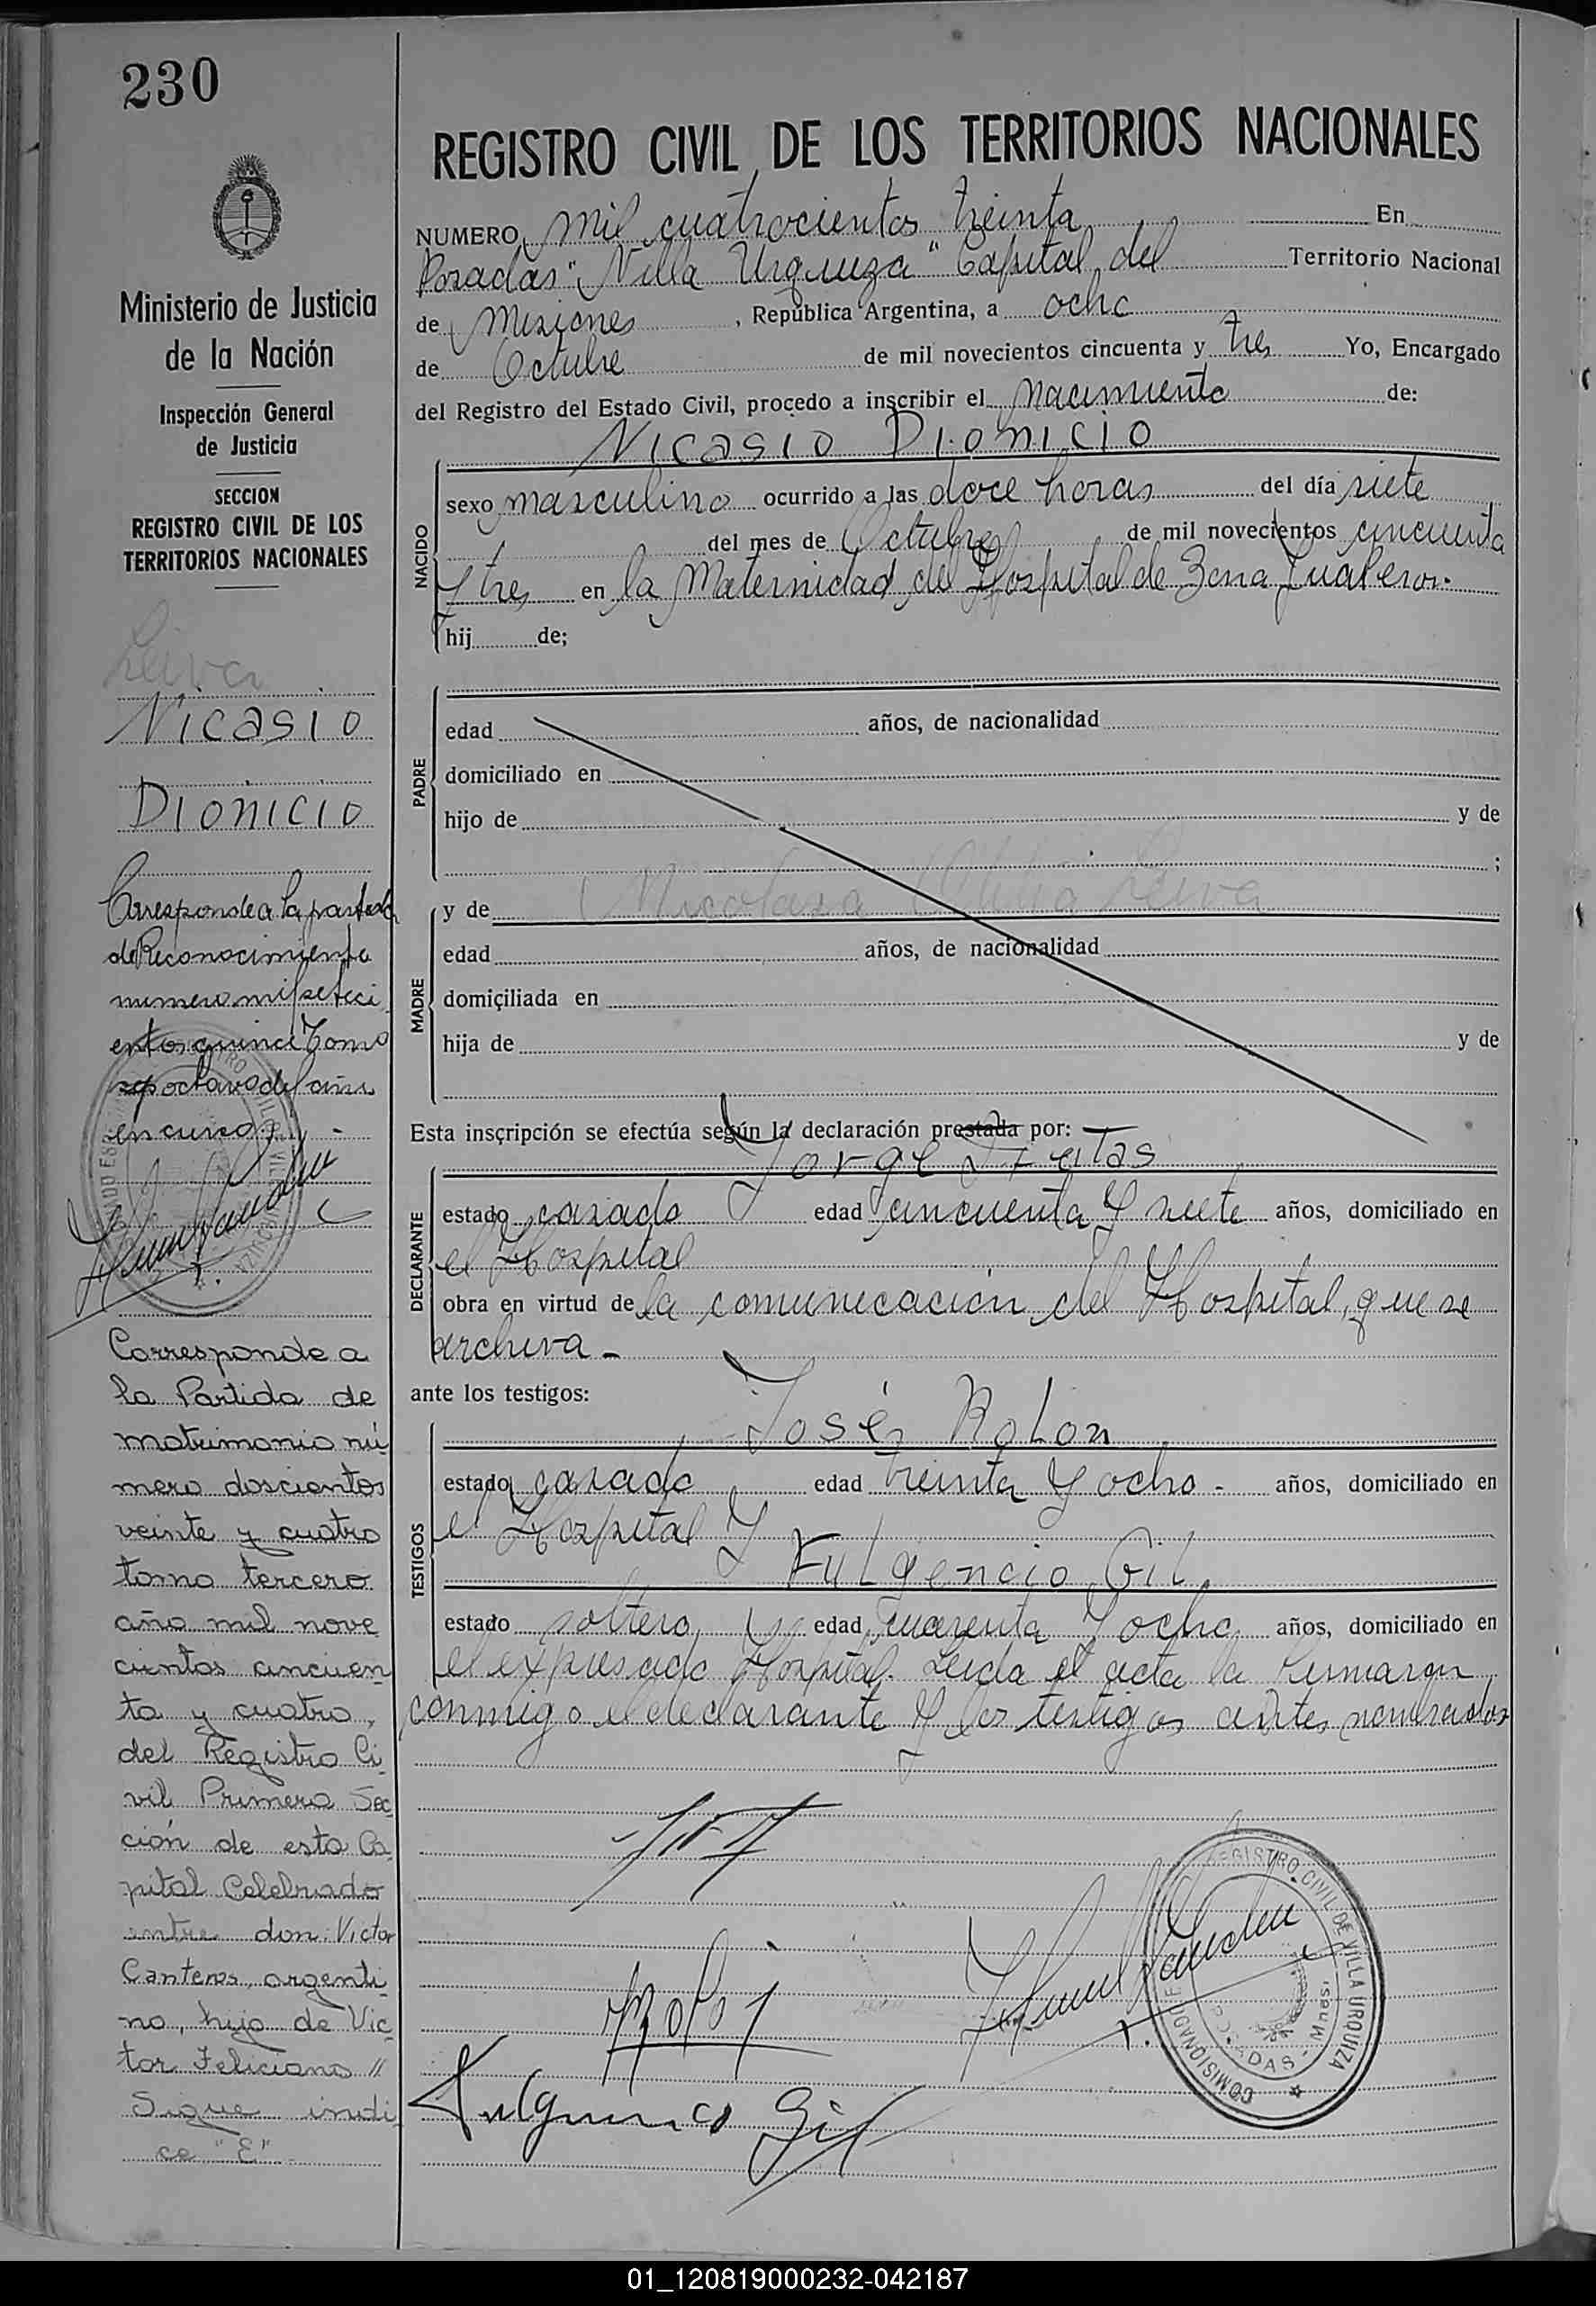 230
Ministerio de Justicia
de la Nación
Inspección General
de Justicia
SECCION
REGISTRO CIVIL DE LOS
TERRITORIOS NACIONALES
Leiva
Nicasio
Dionicio
Corresponde a la partida
de Reconocimiento
numero mil seteci
entos quince Tomo
octavo del año
en curso
Corresponde a
la Partida de
matrimonio nú
mero doscientos
veinte y cuatro
tomo tercero
año mil nove
cientos cincuen
ta y cuatro,
del Registro Ci
vil Primera Sec
ción de esta Ca
pital Celebrado
entre don: Victor
Canteros, argenti
no, hijo de Vic
tor Feliciano //
Sigue indi
ce "E"
REGISTRO CIVIL DE LOS TERRITORIOS NACIONALES
NUMERO mil cuatrocientos treinta En
Posadas "Villa Urquiza" Capital del Territorio Nacional
de Misiones, República Argentina, a ocho
de Octubre de mil novecientos cincuenta y tres Yo, Encargado
del Registro del Estado Civil, procedo a inscribir el nacimiento de:
Nicasio Dionicio
NACIDO
sexo masculino ocurrido a las doce horas del día siete
del mes de Octubre de mil novecientos cincuenta
y tres en la Maternidad del Hospital de Zona Juan Peron.
hij de;
PADRE
edad años, de nacionalidad
domiciliado en
hijo de y de
;
MADRE
y de Nicolasa Leiva
edad años, de nacionalidad
domiciliada en
hija de y de
Esta inscripción se efectúa según la declaración prestada por:
Jorge Freitas
DECLARANTE
estado casado edad cincuenta y siete años, domiciliado en
el Hospital
obra en virtud de la comunicación del Hospital, que se
archiva -
ante los testigos:
José Rolon
TESTIGOS
estado casado edad treinta y ocho - años, domiciliado en
el Hospital y
Fulgencio Gil
estado soltero, edad cuarenta y ocho años, domiciliado en
el expresado Hospital. Leida el acta la firmaron
conmigo el declarante y los testigos antes nombrados
Fulgencio Gil
REGISTRO CIVIL DE VILLA URQUIZA
POSADAS - Mnes.
01_120819000232-042187